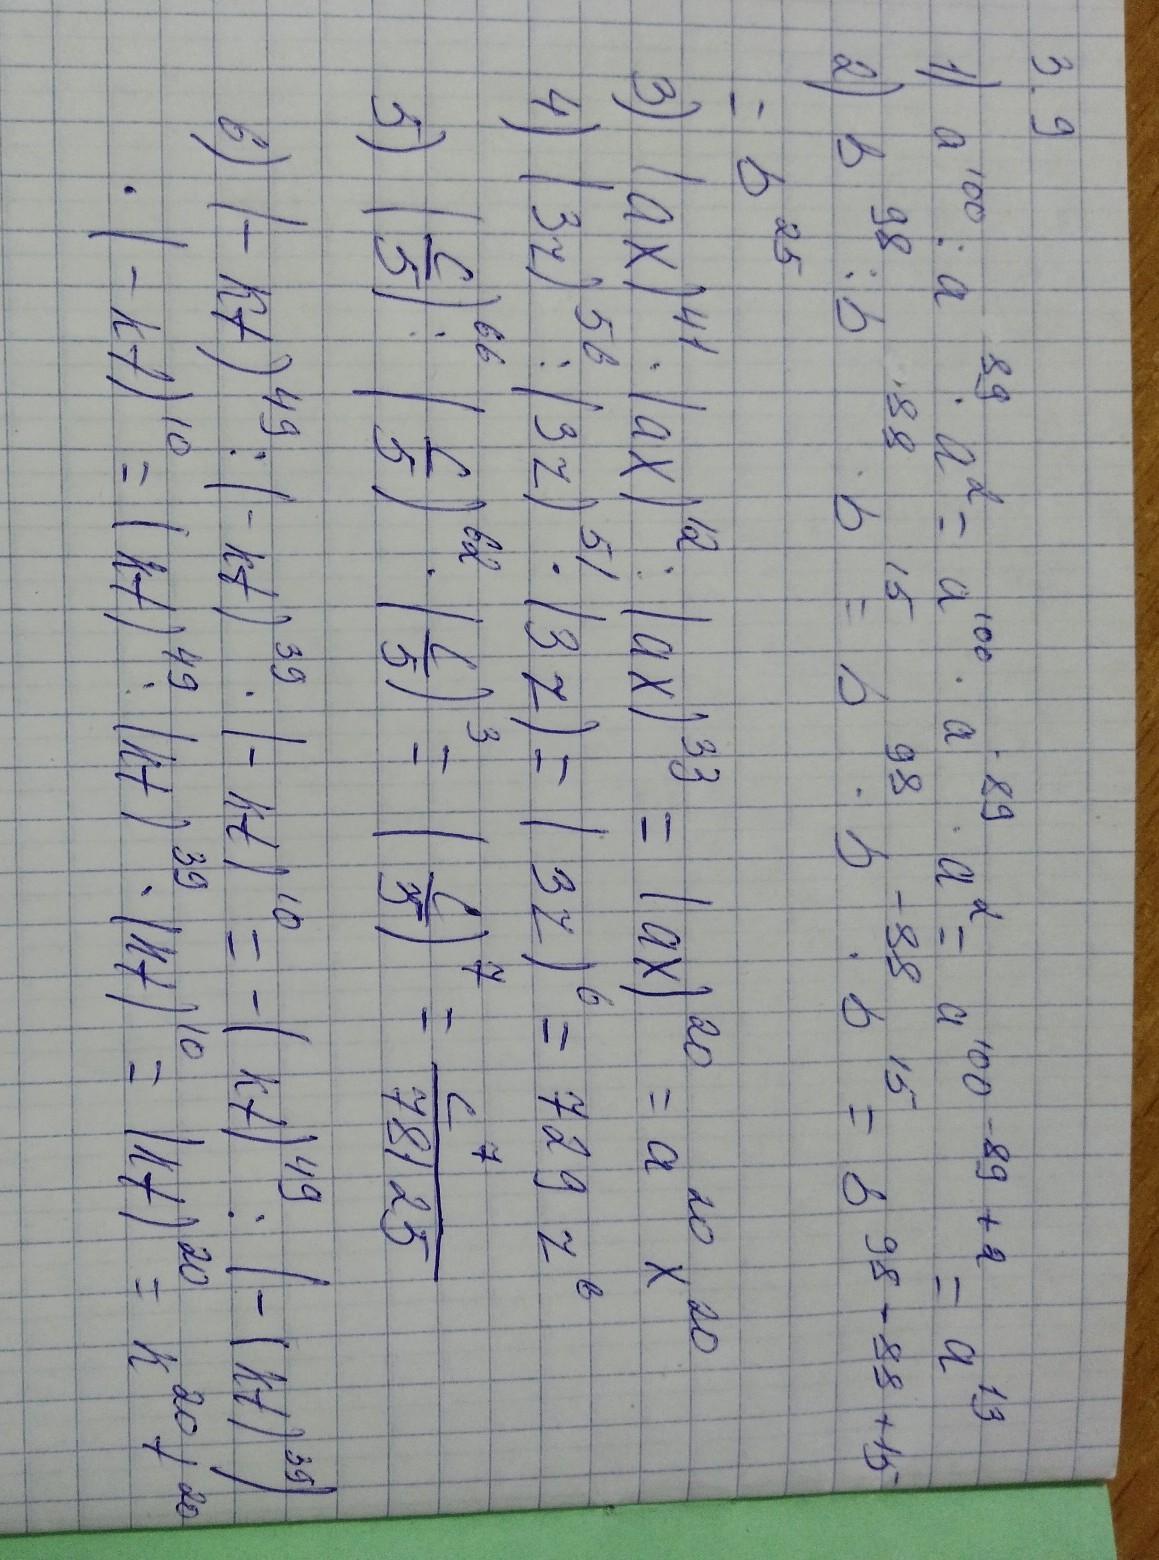 3.9
1) a¹⁰⁰ : a⁸⁹ · a² = a¹⁰⁰ · a⁻⁸⁹ · a² = a¹⁰⁰⁻⁸⁹⁺² = a¹³
2) b⁹⁸ : b⁸⁸ · b¹⁵ = b⁹⁸ · b⁻⁸⁸ · b¹⁵ = b⁹⁸⁻⁸⁸⁺¹⁵
= b²⁵
3) (ax)⁴¹ · (ax)¹² : (ax)³³ = (ax)²⁰ = a²⁰ x²⁰
4) (3z)⁵⁶ : (3z)⁵¹ · (3z) = (3z)⁶ = 729 z⁶
5) (c/5)⁶⁶ : (c/5)⁶² · (c/5)³ = (c/5)⁷ = c⁷/78125
6) (-kt)⁴⁹ : (-kt)³⁹ · (-kt)¹⁰ = -(kt)⁴⁹ : (-(kt)³⁹)
· (-kt)¹⁰ = (kt)⁴⁹ : (kt)³⁹ · (kt)¹⁰ = (kt)²⁰ = k²⁰t²⁰